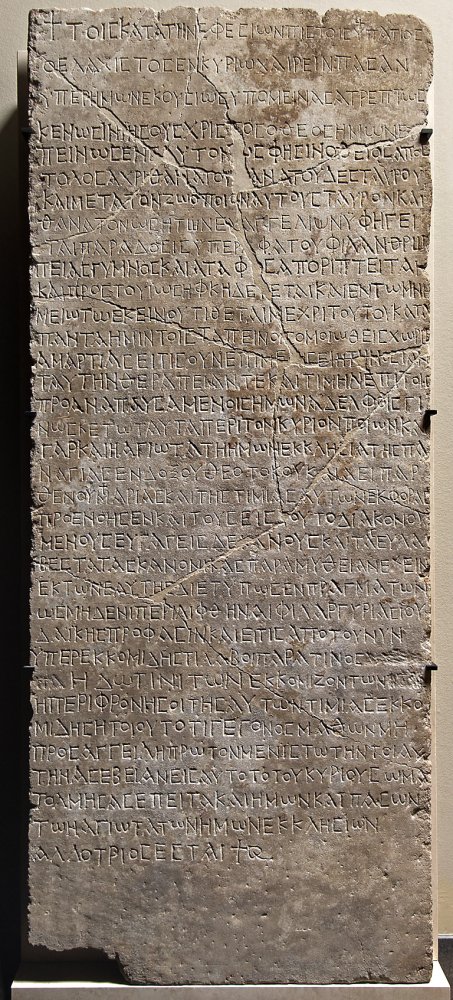 ✝ ΤΟΙΣ ΚΑΤΑ ΤΗΝ ΕΦΕΣΙΩΝ ΠΙΣΤΟΙΣ ΥΠΑΤΙΟΣ
Ο ΕΛΑΧΙΣΤΟΣ ΕΝ ΚΥΡΙΩ ΧΑΙΡΕΙΝ ΠΑΣΑΝ
ΥΠΕΡ ΗΜΩΝ ΕΚΟΥΣΙΩΣ ΥΠΟΜΕΙΝΑΣ ΑΤΡΕΠΤΩΣ
ΚΕΝΩΣΙΝ ΙΗΣΟΥΣ ΧΡΙΣΤΟΣ Ο ΘΕΟΣ ΗΜΩΝ Ε
ΠΕΙΝΩΣΕΝ ΑΥΤΟΝ ΩΣ ΦΗΣΙΝ Ο ΘΕΙΟΣ ΑΠΟΣ
ΤΟΛΟΣ ΑΧΡΙ ΘΑΝΑΤΟΥ ΘΑΝΑΤΟΥ ΔΕ ΣΤΑΥΡΟΥ
ΚΑΙ ΜΕΤΑ ΤΟΝ ΖΩΟΠΟΙΟΝ ΑΥΤΟΥ ΣΤΑΥΡΟΝ ΚΑΙ
ΘΑΝΑΤΟΝ ΩΣ Η ΤΩΝ ΕΥΑΝΓΕΛΙΩΝ ΥΦΗΓΕΙ
ΤΑΙ ΠΑΡΑΔΟΣΙΣ ΥΠΕΡ ΑΦΑΤΟΥ ΦΙΛΑΝΘΡΩ
ΠΕΙΑΣ ΓΥΜΝΟΣ ΚΑΙ ΑΤΑΦΟΣ ΑΠΟΡΙΠΤΕΙΤΑΙ
ΚΑΙ ΠΡΟΣ ΤΟΥ ΙΩΣΗΦ ΚΗΔΕΥΕΤΑΙ ΚΑΙ ΕΝ ΤΩ ΜΝΗ
ΜΕΙΩ ΤΩ ΕΚΕΙΝΟΥ ΤΙΘΕΤΑΙ ΜΕΧΡΙ ΤΟΥΤΟΥ ΚΑΤΑ
ΠΑΝΤΑ ΗΜΙΝ ΤΟΙΣ ΤΑΠΕΙΝΟΙΣ ΟΜΟΙΩΘΕΙΣ ΧΩΡΙΣ
ΑΜΑΡΤΙΑΣ ΕΙ ΤΙΣ ΟΥΝ
ΤΑΥΤΗΝ ΘΕΡΑΠΕΙΑΝ ΤΕ ΚΑΙ ΤΙΜΗΝ ΕΠΙ ΤΟΙΣ
ΠΡΟΑΝΑΠΑΥΣΑΜΕΝΟΙΣ ΗΜΩΝ ΑΔΕΛΦΟΙΣ ΓΙ
ΝΩΣΚΕΤΩ ΤΑΥΤΑ ΠΕΡΙ ΤΟΝ ΚΥΡΙΟΝ ΠΟΙΩΝ ΚΑΙ
ΓΑΡ ΚΑΙ Η ΑΓΙΩΤΑΤΗ ΗΜΩΝ ΕΚΚΛΗΣΙΑ ΤΗΣ ΠΑ
ΝΑΓΙΑΣ ΕΝΔΟΞΟΥ ΘΕΟΤΟΚΟΥ ΚΑΙ ΑΕΙ ΠΑΡ
ΘΕΝΟΥ ΜΑΡΙΑΣ ΚΑΙ ΤΗΣ ΤΙΜΙΑΣ ΑΥΤΩΝ ΕΚΦΟΡΑΣ
ΠΡΟΕΝΟΗΣΕΝ ΚΑΙ ΤΟΥΣ ΕΙΣ ΤΟΥΤΟ ΔΙΑΚΟΝΟΥ
ΜΕΝΟΥΣ ΕΥΑΓΕΙΣ ΔΕΚΑΝΟΥΣ ΚΑΙ ΤΑΣ ΕΥΛΑ
ΒΕΣΤΑΤΑΣ ΚΑΝΟΝΙΚΑΣ ΠΑΡΑΜΥΘΕΙΑΝ ΕΧΕΙΝ
ΕΚ ΤΩΝ ΕΑΥΤΗΣ ΔΙΕΤΥΠΩΣΕΝ ΠΡΑΓΜΑΤΩΝ
ΩΣ ΜΗΔΕΝΙ ΠΕΡΙΛΙΦΘΗΝΑΙ ΦΙΛΑΡΓΥΡΙΑΣ ΙΟΥ
ΔΑΙΚΗΣ ΠΡΟΦΑΣΙΝ ΚΑΙ ΕΙ ΤΙΣ ΑΠΟ ΤΟΥ ΝΥΝ
ΥΠΕΡ ΕΚΚΟΜΙΔΗΣ ΤΙ ΛΑΒΟΙ ΠΑΡΑ ΤΙΝΟΣ
Η ΔΩ ΤΙΝΙ ΤΩΝ ΕΚΚΟΜΙΖΟΝΤΩΝ
Η ΠΕΡΙΦΡΟΝΗΣΟΙ ΤΗΣ ΑΥΤΩΝ ΤΙΜΙΑΣ ΕΚΚΟ
ΜΙΔΗΣ Η ΤΟΙΟΥΤΟ ΤΙ ΓΕΓΟΝΟΣ ΜΑΘΩΝ ΜΗ
ΠΡΟΣΑΓΓΕΙΛΗ ΠΡΩΤΟΝ ΜΕΝ ΙΣΤΩ ΤΗΝ ΤΟΙΑΥ
ΤΗΝ ΑΣΕΒΕΙΑΝ ΕΙΣ ΑΥΤΟ ΤΟ ΤΟΥ ΚΥΡΙΟΥ ΣΩΜΑ
ΤΟΛΜΗΣΑΣ ΕΠΕΙΤΑ ΚΑΙ ΗΜΩΝ ΚΑΙ ΠΑΣΩΝ
ΤΩΝ ΑΓΙΩΤΑΤΩΝ ΗΜΩΝ ΕΚΚΛΗΣΙΩΝ
ΑΛΛΟΤΡΙΟΣ ΕΣΤΑΙ ✝ Ω